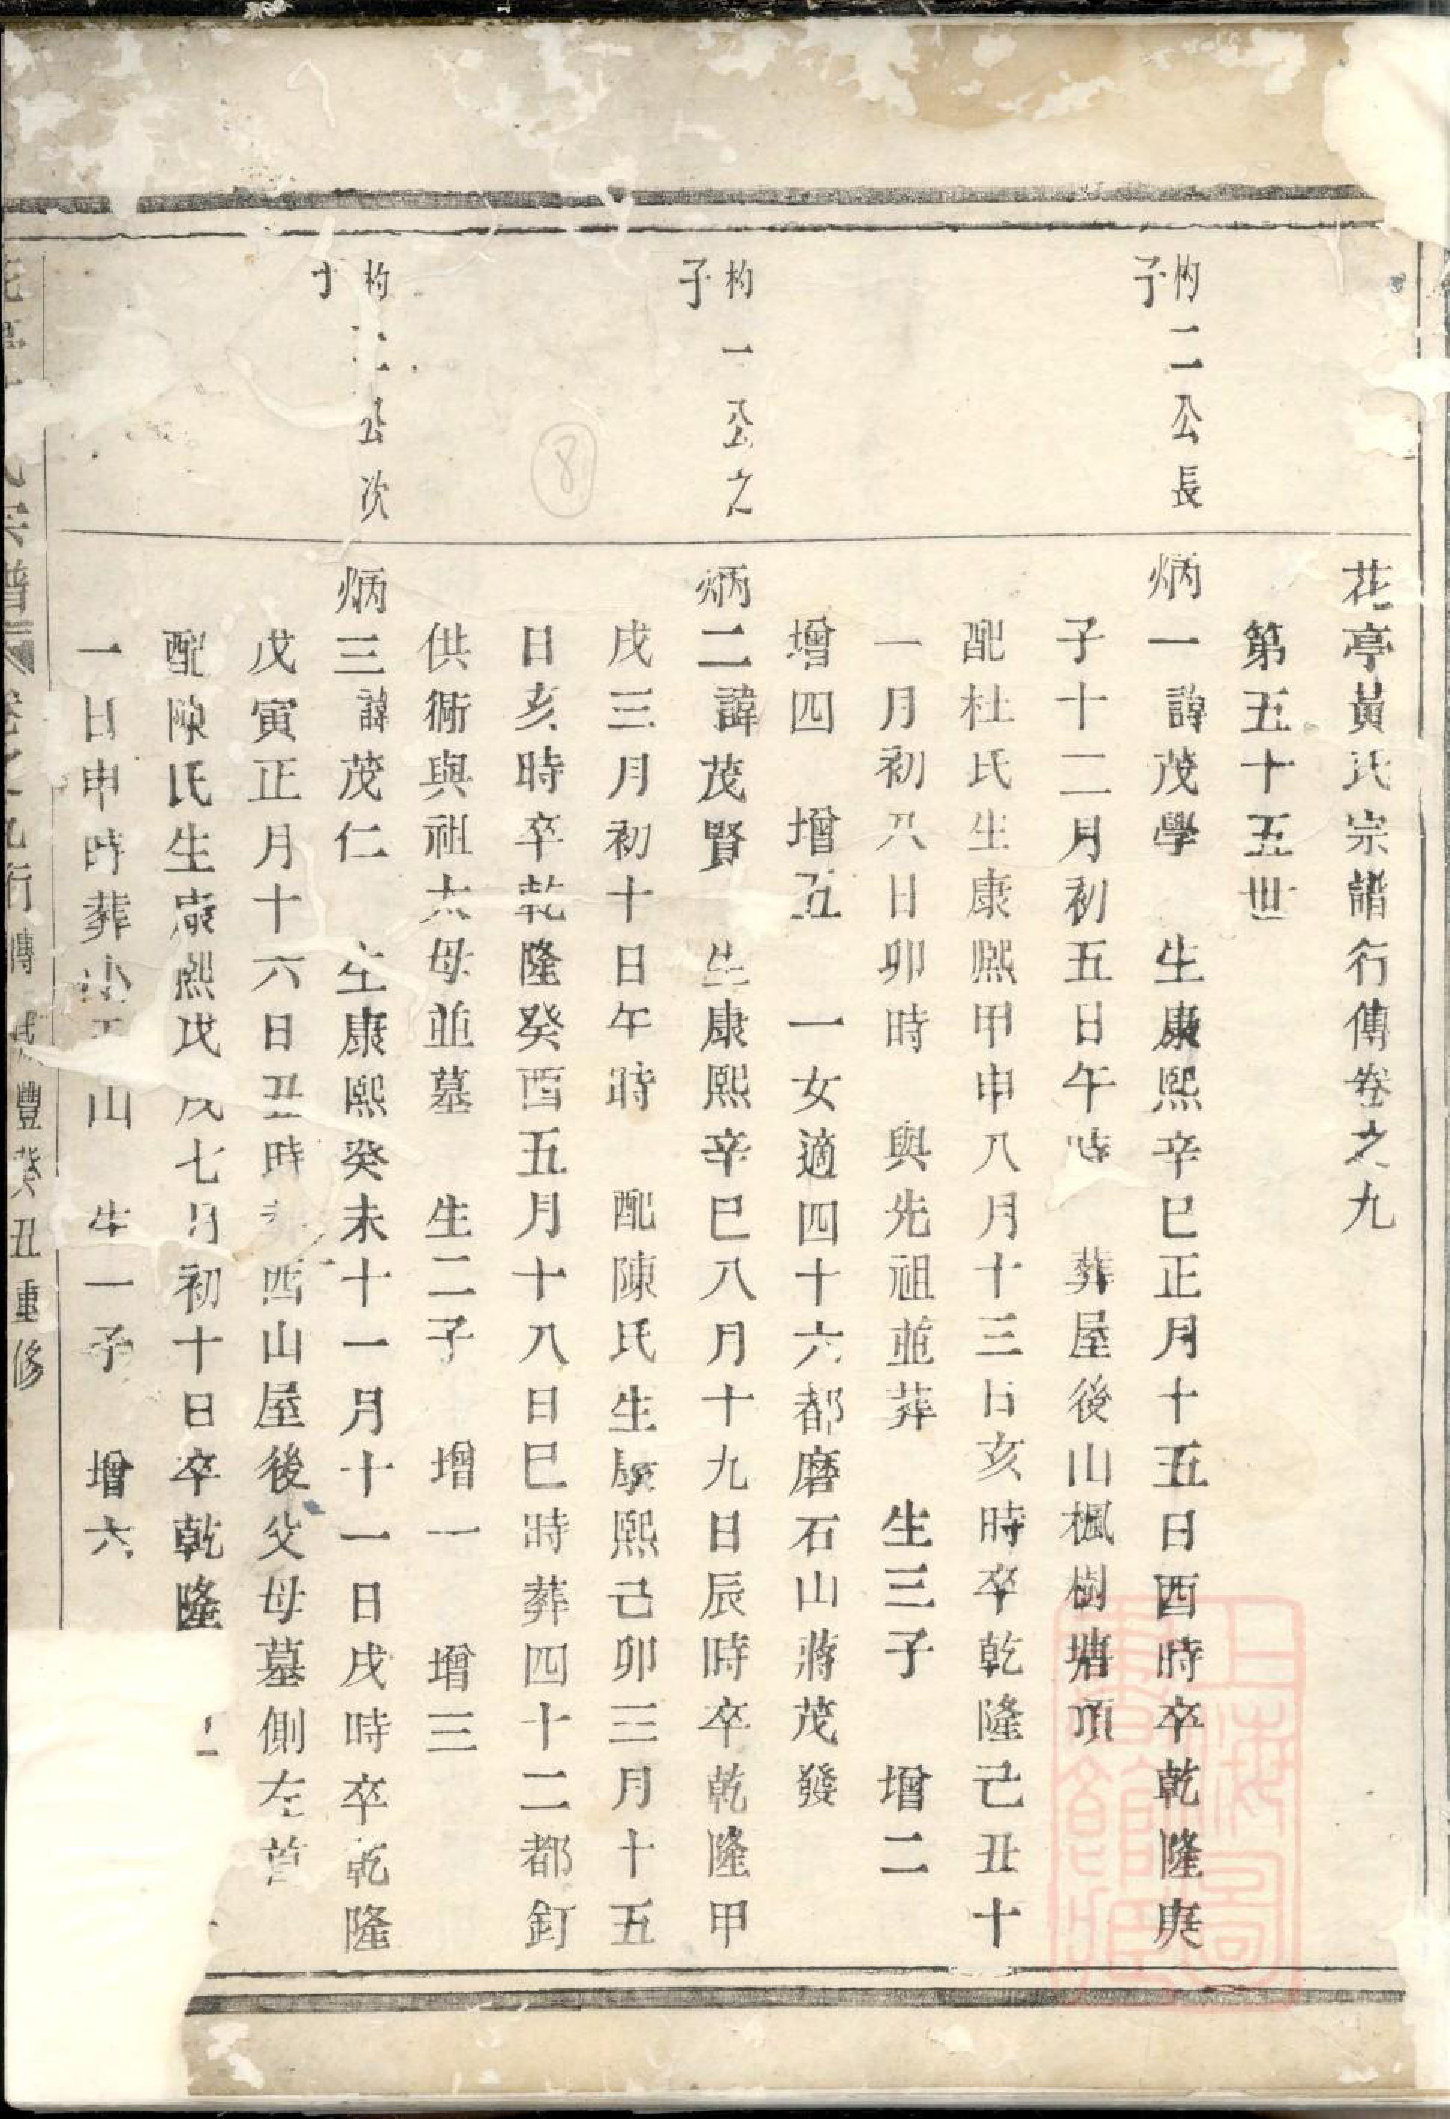 花亭黃氏宗譜行傳卷之九
第五十五世
杓二公長
子
炳一諱茂學 生康熙辛巳正月十五日酉時卒乾隆庚
子十二月初五日午時 葬屋後山楓樹塘項
配杜氏生康熙甲申八月十三日亥時卒乾隆己丑十
一月初八日卯時 與先祖並葬 生三子 增二
增四 增五 一女適四十六都磨石山蔣茂發
杓一公之
子
炳二諱茂賢 生康熙辛巳八月十九日辰時卒乾隆甲
戌三月初十日午時 配陳氏生康熙己卯三月十五
日亥時卒乾隆癸酉五月十八日巳時葬四十二都釘
供衕與祖太母並墓 生二子 增一 增三
杓二公次
子
炳三諱茂仁 生康熙癸未十一月十一日戌時卒乾隆
戊寅正月十六日丑時葬西山屋後父母墓側左首
配陳氏生康熙戊戌七月初十日卒乾隆
一日申時葬 山 生一子 增六
氏宗譜 卷之九行傳 咸豐癸丑重修
上海圖書館藏
8